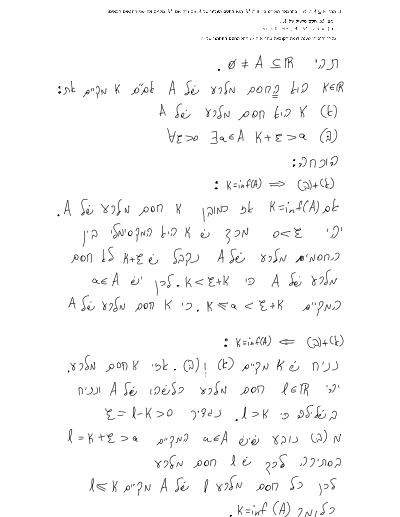 תהי ∅ ≠ A ⊆ ℝ .
K∈ℝ הוא החסם מלרע של A אמ"מ K מקיים את:
(א) K הוא חסם מלרע של A
(ב) ∀ε>0 ∃a∈A K+ε>a
הוכחה:
K=inf(A) ⟹ (א)+(ב) :
אם K=inf(A) אז כמובן K חסם מלרע של A.
יהי ε>0 מכך ש K הוא המקסימלי בין
החסמים מלרע של A נקבל ש K+ε לא חסם
מלרע של A כי K<ε+K. לכן יש a∈A
המקיים K≤a<ε+K. כי K חסם מלרע של A
K=inf(A) ⟸ (א)+(ב) :
נניח ש K מקיים (א) ו(ב). אזי K חסם מלרע.
יהי l∈ℝ חסם מלרע כלשהו של A ונניח
בשלילה כי l>K. נגדיר ε=l-K>0
מ (ב) נובע שיש a∈A המקיים l=K+ε>a
בסתירה לכך ש l חסם מלרע
לכן כל חסם מלרע l של A מקיים l≤K
כלומר K=inf(A).